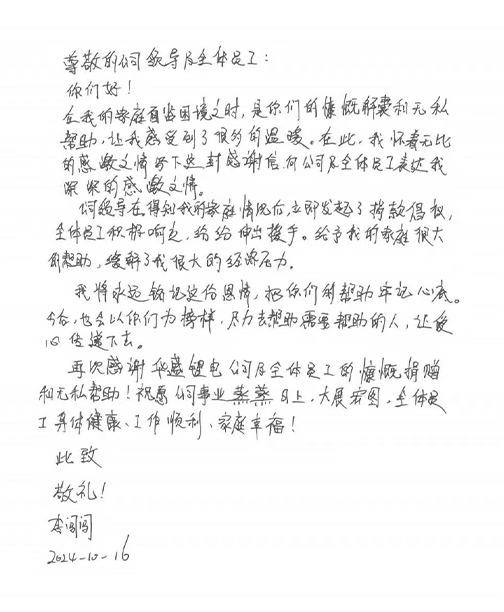 尊敬的公司领导及全体员工：
你们好！
在我的家庭面临困境之时，是你们的慷慨解囊和无私
帮助，让我感受到了很多的温暖。在此，我怀着无比
的感激之情写下这封感谢信，向公司及全体员工表达我
深深的感激之情。
公司领导在得到我的家庭情况后，立即发起了捐款倡议，
全体员工积极响应，纷纷伸出援手。给予我的家庭很大
的帮助，缓解了我很大的经济压力。
我将永远铭记这份恩情，把你们的帮助牢记心底。
今后，也会以你们为榜样，尽力去帮助需要帮助的人，让爱
心传递下去。
再次感谢华盛锂电公司及全体员工的慷慨捐赠
和无私帮助！祝愿公司事业蒸蒸日上，大展宏图，全体员
工身体健康、工作顺利、家庭幸福！
此致
敬礼！
李闯闯
2024-10-16